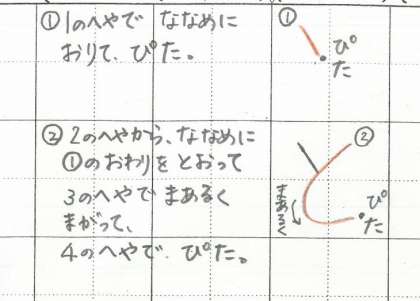 ①1のへやで ななめに
おりて、ぴた。
①
ぴ
た
②2のへやから、ななめに
①のおわりを とおって
3のへやで まあるく
まがって、
4のへやで、ぴた。
②
まあるく
ぴ
た